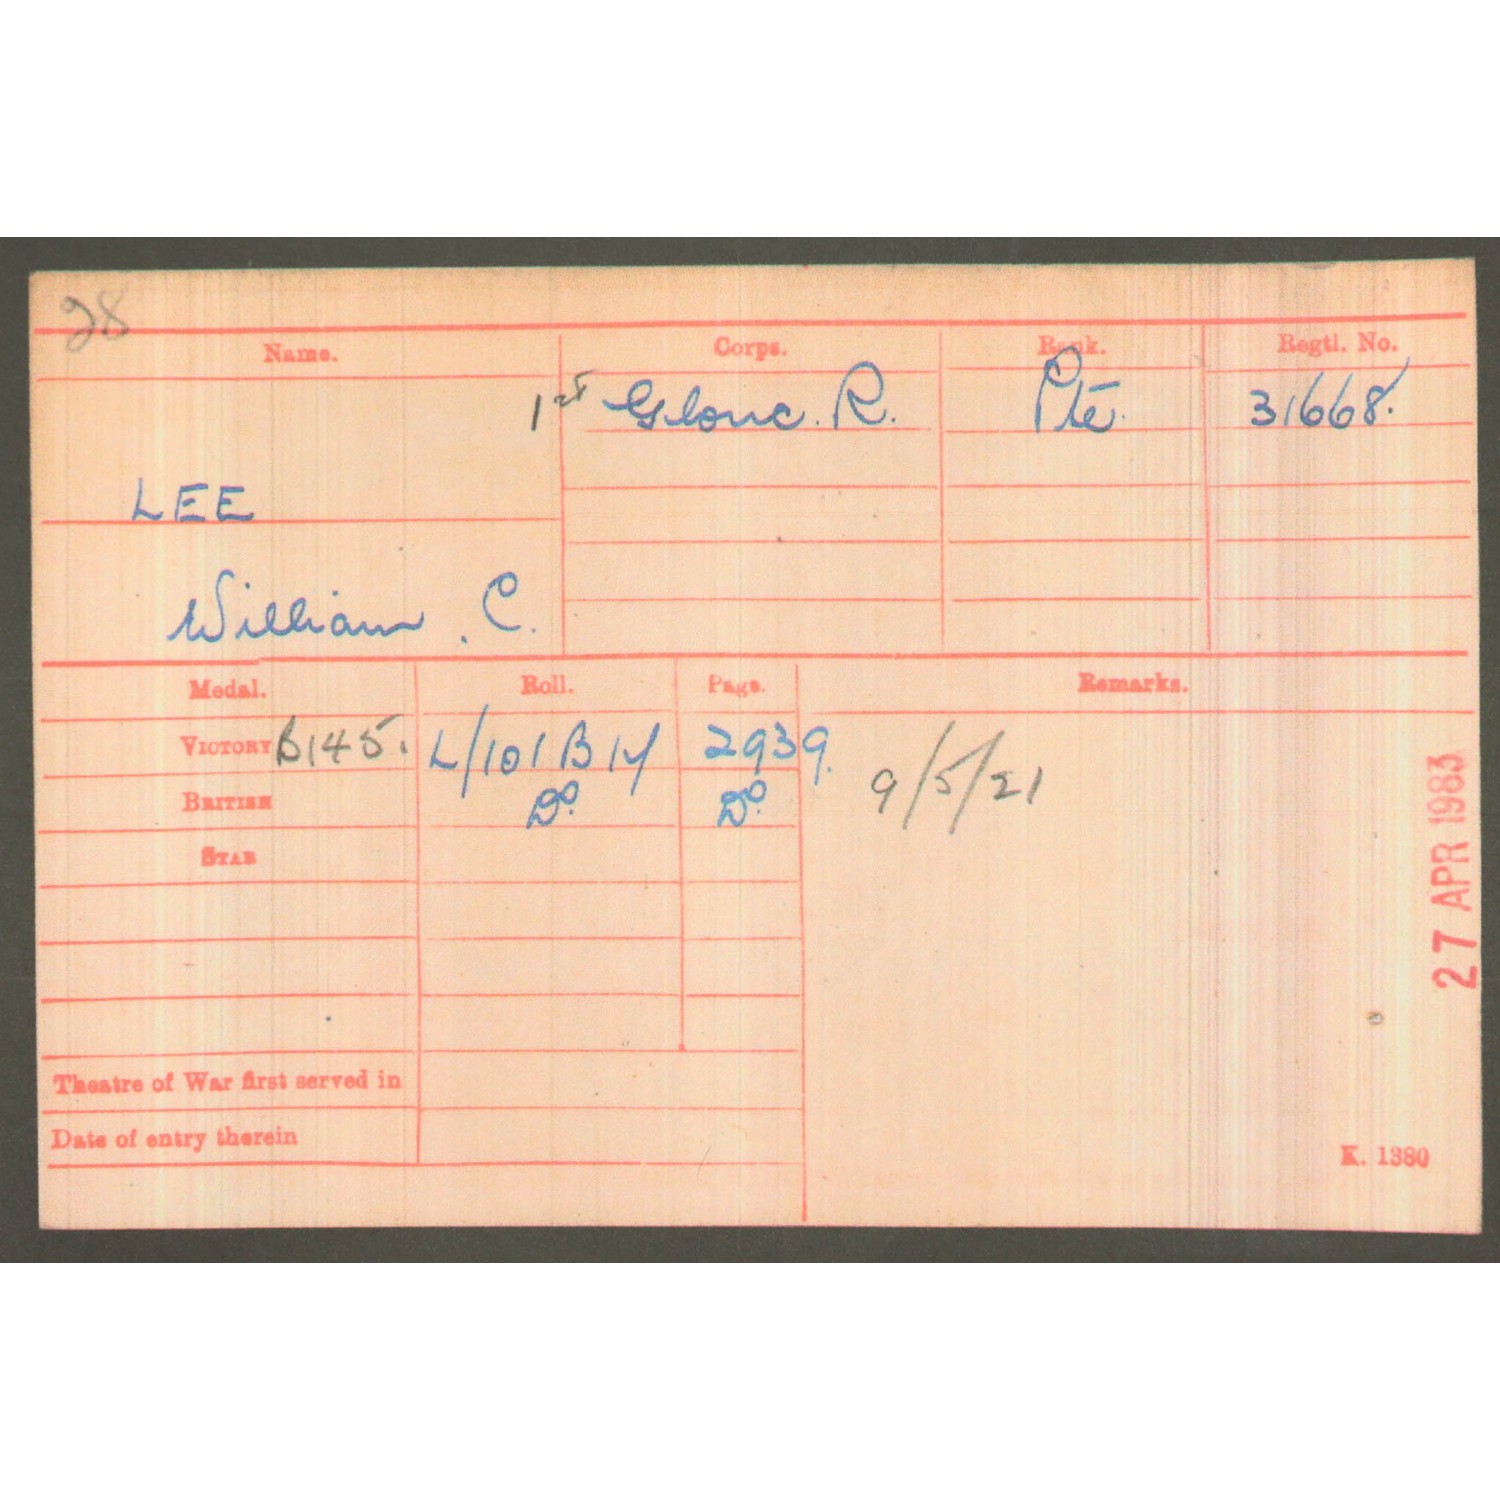 28
Name. Corps. Rank. Regtl. No.
1st Glouc. R. Pte. 31668.
LEE
William. C.
Medal. Roll. Page. Remarks.
VICTORY B145. L/101 B 14 2939.
BRITISH Do. Do. 9/5/21
STAR
Theatre of War first served in
Date of entry therein
K. 1380
27 APR 1983